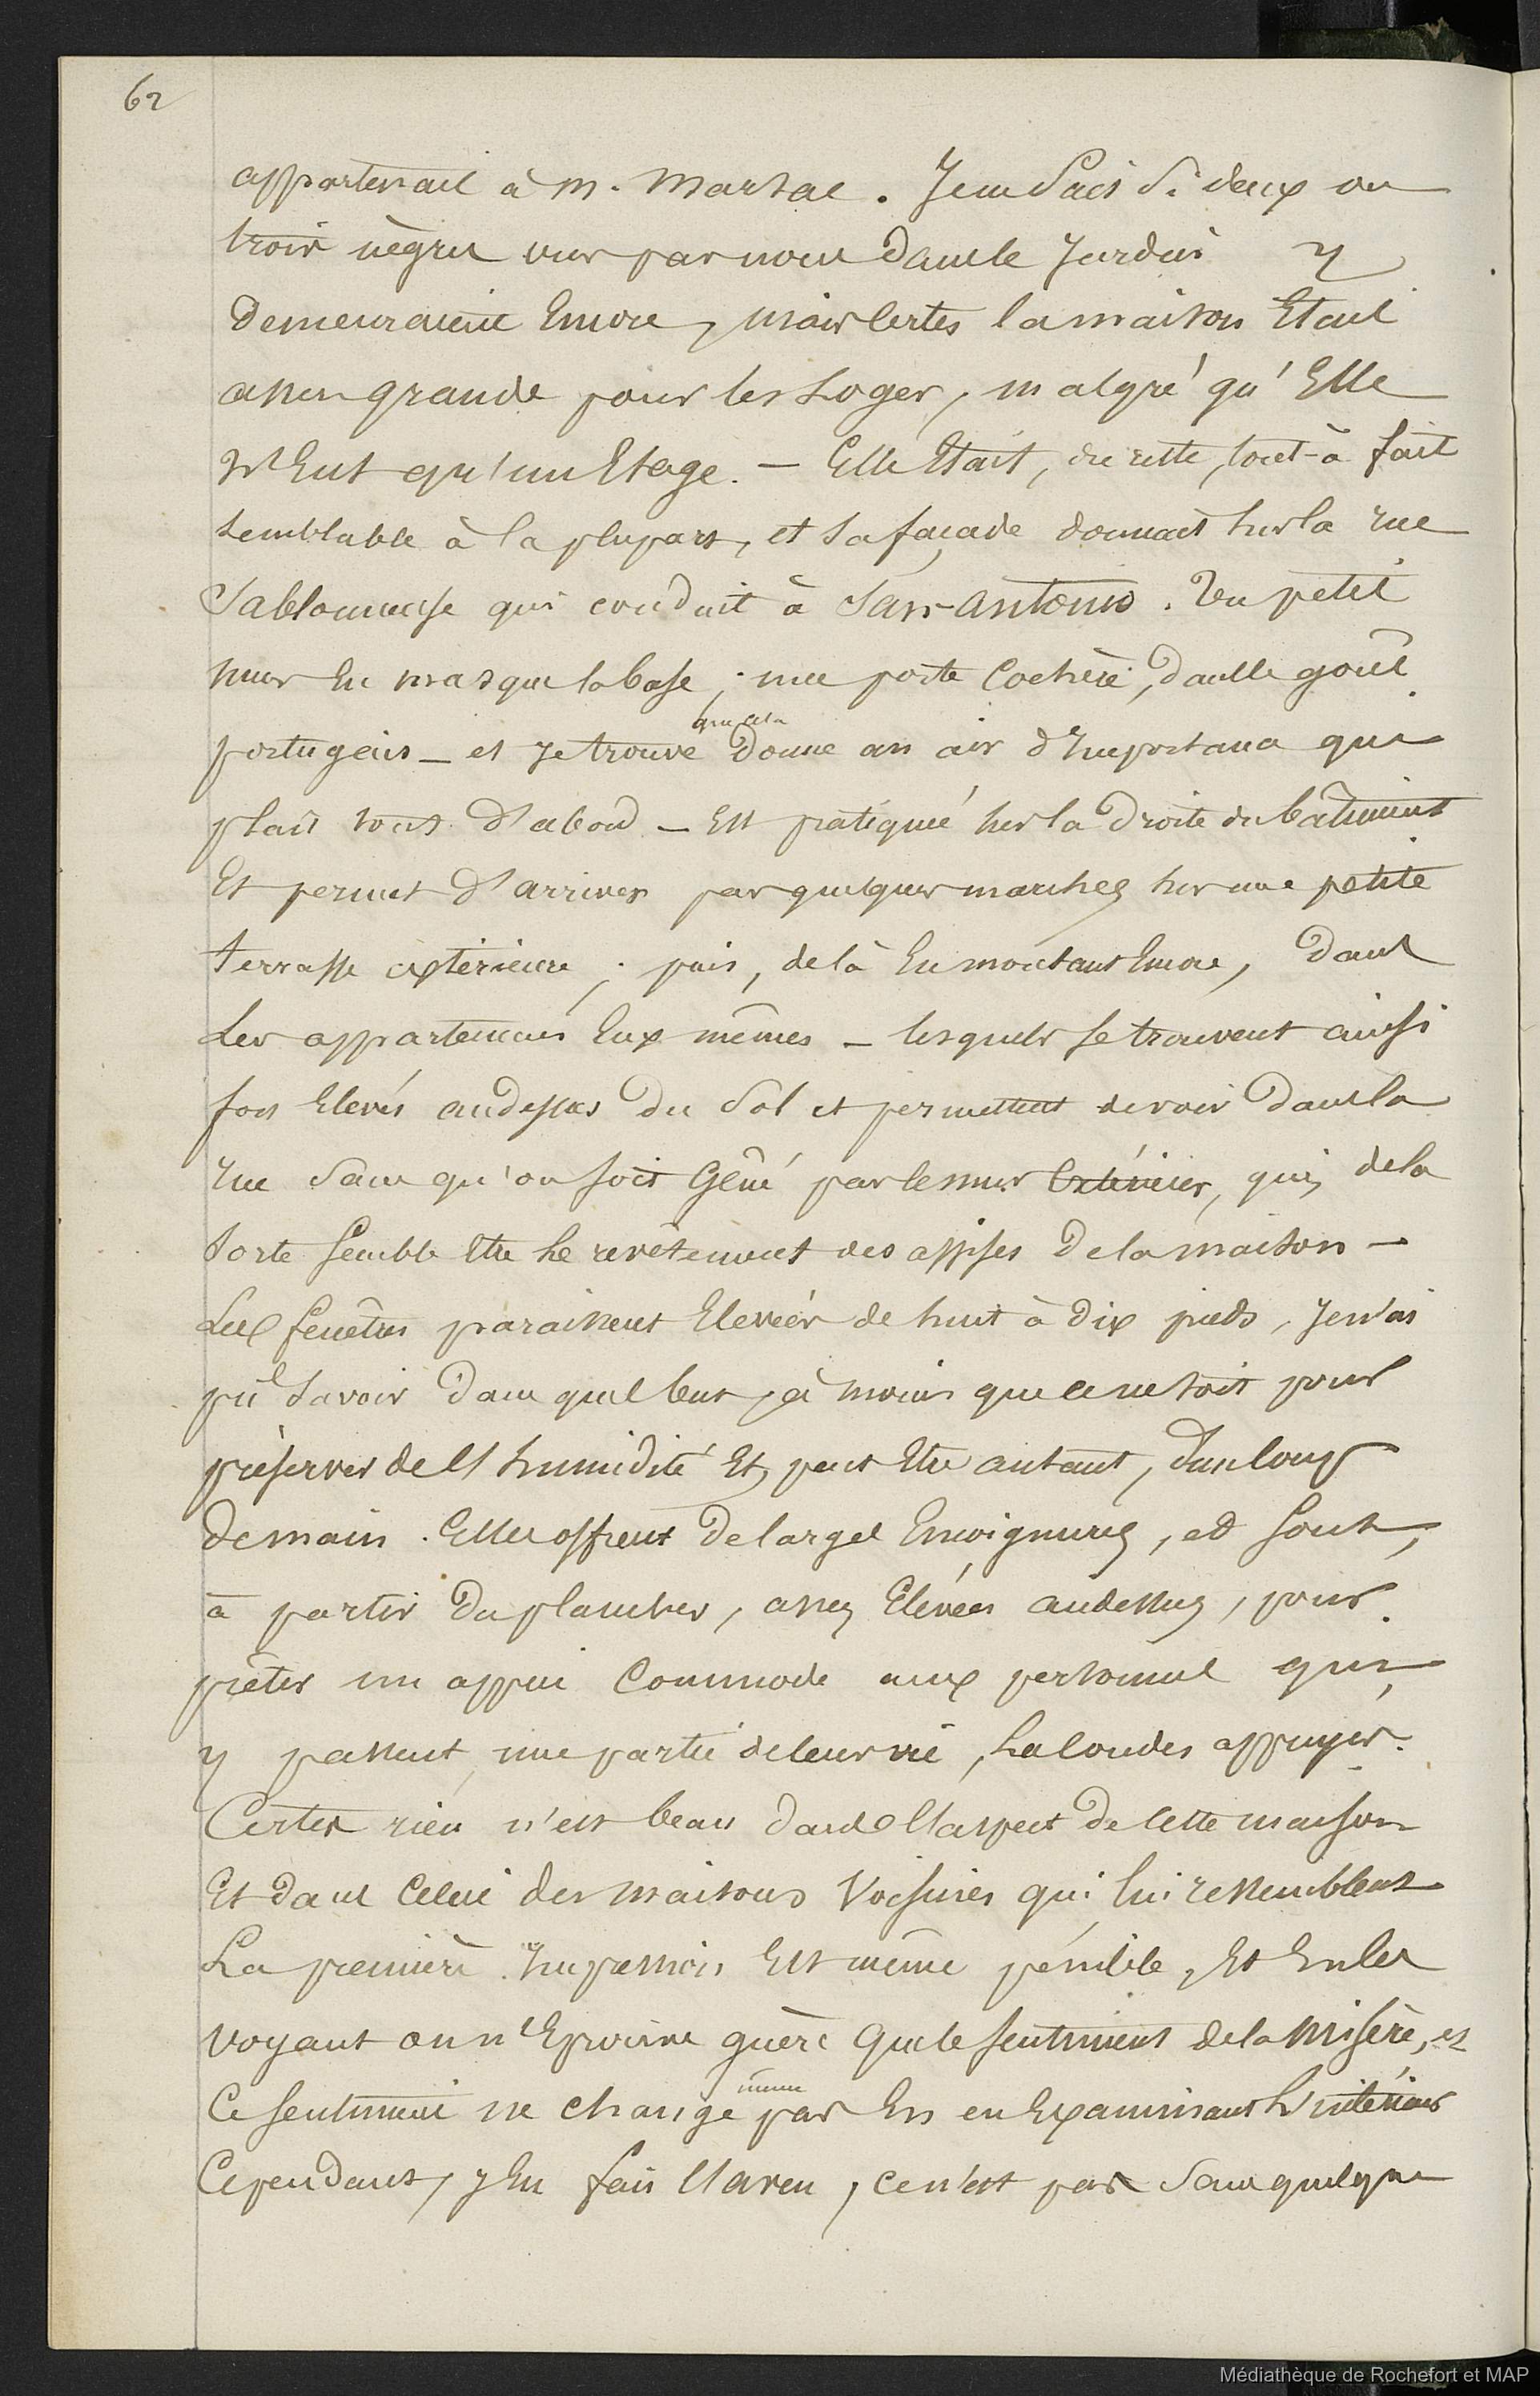 62
appartenait à M. Marsac. Je ne sais si deux ou
trois nègres vus par nous dans le jardin y
demeuraient Encore, mais certes la maison Etait
assez grande pour les Loger, malgré qu'Elle
N'Eut qu'un Etage. — Elle Etait, du reste, tout-à fait
semblable à la plupart, et sa façade donnait sur la rue
Sablonneuse qui conduit à San-Antonio. Un petit
mur En masque la base; une porte Cochère, dans le goût
portugais — et Je trouve que cela donne un air d'Importance qui
plait tout d'abord — Est pratiquée sur la droite du bâtiment
Et permet d'arriver par quelques marches sur une petite
terrasse extérieure; puis, de là En montant Encore, dans
Les appartemens Eux mêmes — lesquels se trouvent ainsi
fort Elevés au dessus du Sol et permettent de voir dans la
rue sans qu'on soit Gêné par le mur Extérieur, qui, de la
sorte semble Etre le revêtement des assises de la maison —
Les fenêtres paraissent Elevées de huit à dix pieds, Je n'ai
pû savoir dans quel but, à moins que ce ne soit pour
préserver de l'humidité Et, peut Etre autant, d'un coup
de main. Elles offrent de larges Encoignures, et sont,
à partir du plancher, assez Elevées au dessus, pour
prêter un appui Commode aux personnes qui,
y passent, une partie de leur vie, à accouder appuyer.
Certes rien n'est beau dans l'aspect de cette maison
Et dans Celui des maisons Voisines qui lui ressemblent
La première Impression Est même pénible, Et En les
voyant on n'Eprouve guère que le sentiment de la misère, et
Ce sentiment ne change même pas En en Examinant L'intérieur
Cependant, j'En fais l'aveu, ce n'est pas sans quelque
Médiathèque de Rochefort et MAP